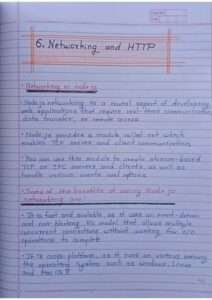 6. Networking and HTTP
• Networking in Node.js
• Node.js networking is a crucial aspect of developing
web applications that require real-time communication,
data transfer, or remote access.
• Node.js provides a module called net which
enables TCP server and client communication.
• You can use this module to create stream-based
TCP or IPC servers and clients, as well as
handle various events and options.
• Some of the benefits of using Node.js
networking are:
• It is fast and scalable, as it uses an event-driven
and non-blocking I/O model that allows multiple
concurrent connections without waiting for I/O
operations to complete.
• It is cross-platform, as it runs on various
operating systems such as Windows, Linux
and Mac OS X